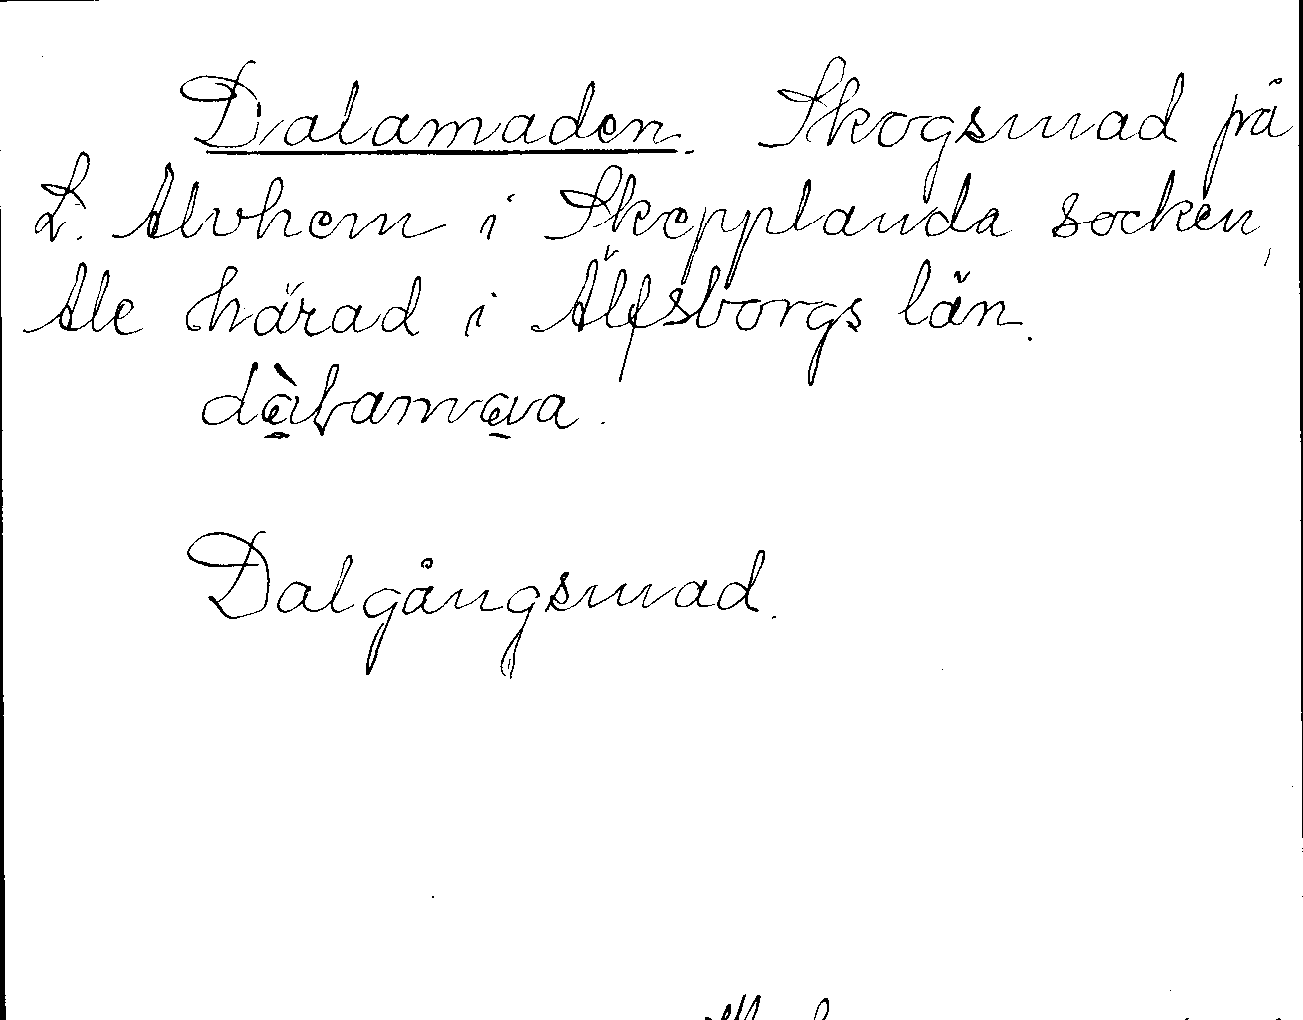 Dalamaden. Skogsmad på
L. Alvhem i Skepplanda socken,
Ale härad i Älfsborgs län.
dàlamava.

Dalgångsmad.